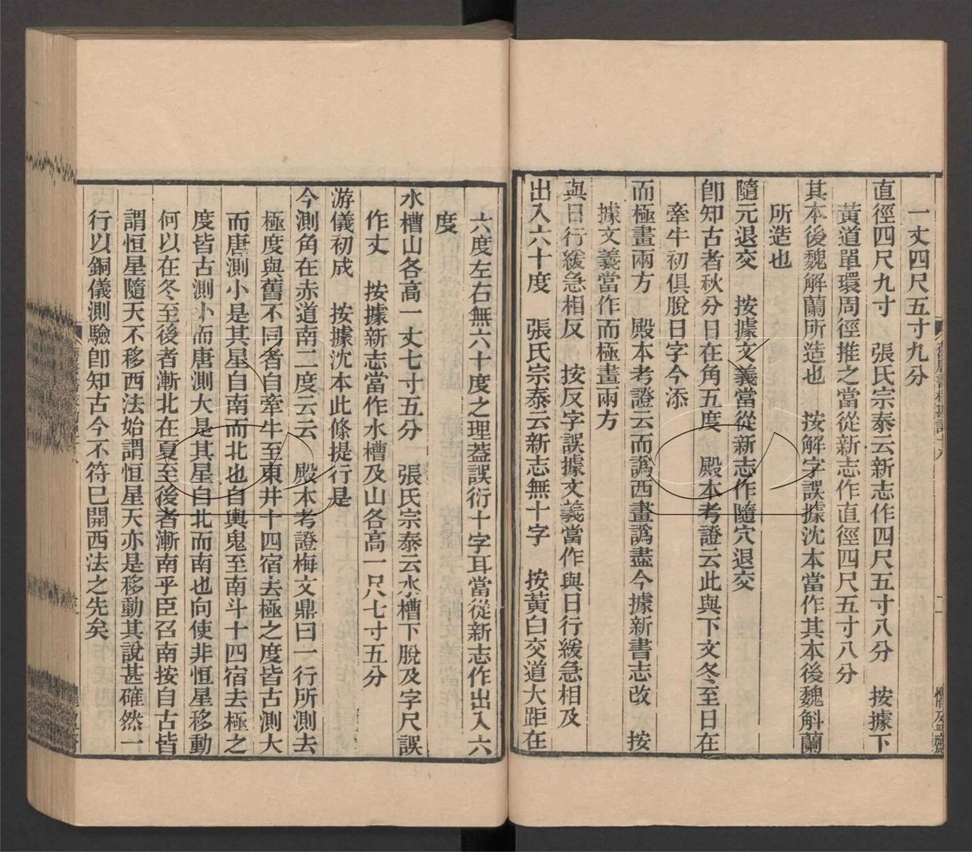 一丈四尺五寸九分
直徑四尺九寸　張氏宗泰云新志作四尺五寸八分　按據下
黃道單環周徑推之當從新志作直徑四尺五寸八分
其本後魏解蘭所造也　按解字誤據沈本當作其本後魏斛蘭
所造也
隨元退交　按據文義當從新志作隨穴退交
卽知古者秋分日在角五度　殿本考證云此與下文冬至日在
牽牛初俱脫日字今添
而極畫兩方　殿本考證云而譌西畫譌盡今據新書志改　按
據文義當作而極畫兩方
與日行緩急相反　按反字誤據文義當作與日行緩急相及
出入六十度　張氏宗泰云新志無十字　按黃白交道大距在
六度左右無六十度之理蓋誤衍十字耳當從新志作出入六
度
水槽山各高一丈七寸五分　張氏宗泰云水槽下脫及字尺誤
作丈　按據新志當作水槽及山各高一尺七寸五分
游儀初成　按據沈本此條提行是
今測角在赤道南二度云云　殿本考證梅文鼎曰一行所測去
極度與舊不同者自牽牛至東井十四宿去極之度皆古測大
而唐測小是其星自南而北也自輿鬼至南斗十四宿去極之
度皆古測小而唐測大是其星自北而南也向使非恒星移動
何以在冬至後者漸北在夏至後者漸南乎臣召南按自古皆
謂恒星隨天不移西法始謂恒星天亦是移動其說甚確然一
行以銅儀測驗卽知古今不符已開西法之先矣